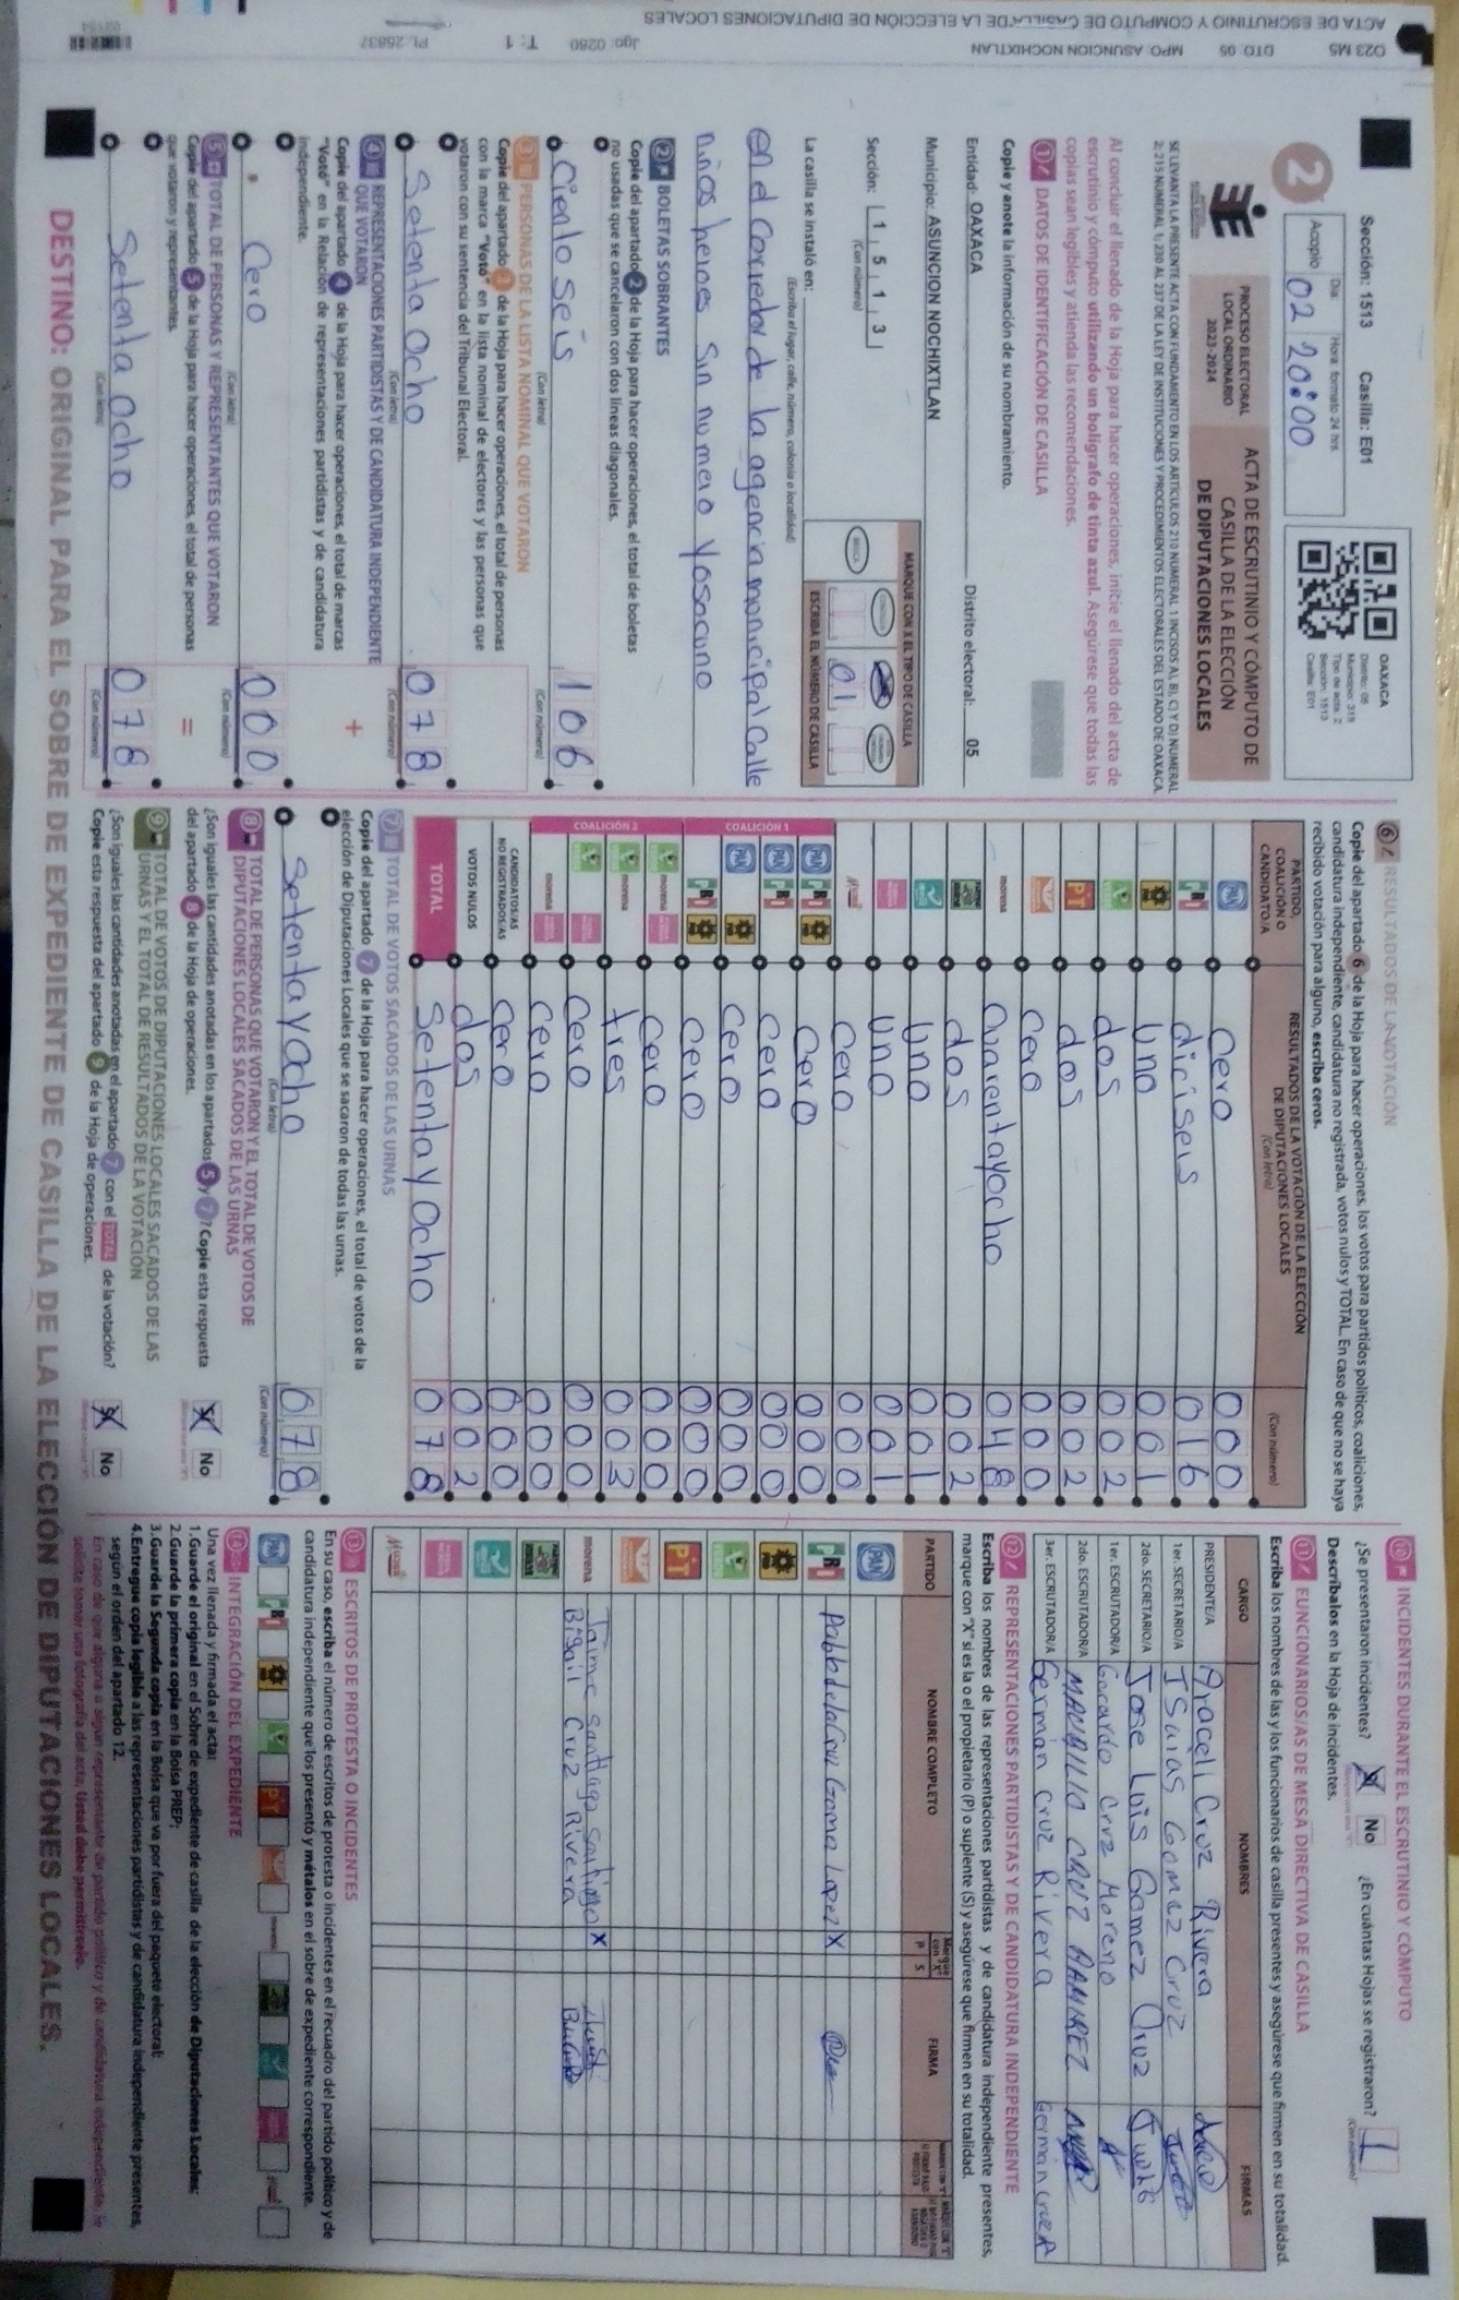 Sección: 1513 Casilla: E01
2
Acopio
Día: Hora: formato 24 hrs.
02 20:00
OAXACA
Distrito: 05
Municipio: 319
Tipo de acta: 2
Sección: 1513
Casilla: E01
PROCESO ELECTORAL
LOCAL ORDINARIO
2023-2024
ACTA DE ESCRUTINIO Y CÓMPUTO DE
CASILLA DE LA ELECCIÓN
DE DIPUTACIONES LOCALES
SE LEVANTA LA PRESENTE ACTA CON FUNDAMENTO EN LOS ARTÍCULOS 210 NUMERAL 1 INCISOS A), B), C) Y D) NUMERAL
2; 215 NUMERAL 1; 230 AL 237 DE LA LEY DE INSTITUCIONES Y PROCEDIMIENTOS ELECTORALES DEL ESTADO DE OAXACA.
Al concluir el llenado de la Hoja para hacer operaciones, inicie el llenado del acta de
escrutinio y cómputo utilizando un bolígrafo de tinta azul. Asegúrese que todas las
copias sean legibles y atienda las recomendaciones.
1 DATOS DE IDENTIFICACIÓN DE CASILLA
Copie y anote la información de su nombramiento.
Entidad: OAXACA Distrito electoral: 05
Municipio: ASUNCION NOCHIXTLAN
Sección: 1 5 1 3
(Con número)
MARQUE CON X EL TIPO DE CASILLA
BÁSICA
01
ESCRIBA EL NÚMERO DE CASILLA
La casilla se instaló en:
(Escriba el lugar, calle, número, colonia o localidad)
en el corredor de la agencia monicipal Calle
niños heroes sin numero Yosocuno
2 BOLETAS SOBRANTES
Copie del apartado 2 de la Hoja para hacer operaciones, el total de boletas
no usadas que se cancelaron con dos líneas diagonales.
Ciento seis 106
(Con letra) (Con número)
3 PERSONAS DE LA LISTA NOMINAL QUE VOTARON
Copie del apartado 3 de la Hoja para hacer operaciones, el total de personas
con la marca "Votó" en la lista nominal de electores y las personas que
votaron con su sentencia del Tribunal Electoral.
Setenta Ocho 078
(Con letra) (Con número)
4 REPRESENTACIONES PARTIDISTAS Y DE CANDIDATURA INDEPENDIENTE
QUE VOTARON
Copie del apartado 4 de la Hoja para hacer operaciones, el total de marcas
"Votó" en la Relación de representaciones partidistas y de candidatura
independiente.
+
Cero 000
(Con letra) (Con número)
5 TOTAL DE PERSONAS Y REPRESENTANTES QUE VOTARON
Copie del apartado 5 de la Hoja para hacer operaciones, el total de personas
que votaron y representantes.
=
Setenta Ocho 078
(Con letra) (Con número)
6 RESULTADOS DE LA VOTACIÓN
Copie del apartado 6 de la Hoja para hacer operaciones, los votos para partidos políticos, coaliciones,
candidatura independiente, candidatura no registrada, votos nulos y TOTAL. En caso de que no se haya
recibido votación para alguno, escriba ceros.
PARTIDO,
COALICIÓN O
CANDIDATO/A
RESULTADOS DE LA VOTACIÓN DE LA ELECCIÓN
DE DIPUTACIONES LOCALES
(Con letra) (Con número)
PAN Cero 000
PRI diciseis 016
PRD Uno 001
dos 002
PT dos 002
Cero 000
morena Cuarentayocho 048
dos 002
Uno 001
Uno 001
Cero 000
COALICIÓN 1
PAN PRI PRD Cero 000
PAN PRI Cero 000
PAN PRD Cero 000
PRI PRD Cero 000
COALICIÓN 2
morena Cero 000
morena tres 003
Cero 000
morena Cero 000
CANDIDATOS/AS
NO REGISTRADOS/AS Cero 000
VOTOS NULOS dos 002
TOTAL Setenta y Ocho 078
7 TOTAL DE VOTOS SACADOS DE LAS URNAS
Copie del apartado 7 de la Hoja para hacer operaciones, el total de votos de la
elección de Diputaciones Locales que se sacaron de todas las urnas.
Setenta y Ocho 078
(Con letra) (Con número)
8 TOTAL DE PERSONAS QUE VOTARON Y EL TOTAL DE VOTOS DE
DIPUTACIONES LOCALES SACADOS DE LAS URNAS
¿Son iguales las cantidades anotadas en los apartados 5 y 7? Copie esta respuesta
del apartado 8 de la Hoja de operaciones.
Sí No
9 TOTAL DE VOTOS DE DIPUTACIONES LOCALES SACADOS DE LAS
URNAS Y EL TOTAL DE RESULTADOS DE LA VOTACIÓN
¿Son iguales las cantidades anotadas en el apartado 7 con el TOTAL de la votación?
Copie esta respuesta del apartado 9 de la Hoja de operaciones.
Sí No
10 INCIDENTES DURANTE EL ESCRUTINIO Y CÓMPUTO
¿Se presentaron incidentes? Sí No ¿En cuántas Hojas se registraron? 1
(Con número)
Descríbalos en la Hoja de incidentes.
11 FUNCIONARIOS/AS DE MESA DIRECTIVA DE CASILLA
Escriba los nombres de las y los funcionarios de casilla presentes y asegúrese que firmen en su totalidad.
CARGO NOMBRES FIRMAS
PRESIDENTE/A Araceli Cruz Rivera
1er. SECRETARIO/A Isaias Gomez Cruz
2do. SECRETARIO/A Jose Luis Gomez Cruz
1er. ESCRUTADOR/A Gerardo Cruz Moreno
2do. ESCRUTADOR/A MAURILIO CRUZ RAMIREZ
3er. ESCRUTADOR/A German Cruz Rivera German Cruz R
12 REPRESENTACIONES PARTIDISTAS Y DE CANDIDATURA INDEPENDIENTE
Escriba los nombres de las representaciones partidistas y de candidatura independiente presentes,
marque con "X" si es la o el propietario (P) o suplente (S) y asegúrese que firmen en su totalidad.
PARTIDO NOMBRE COMPLETO Marque con "X" P S FIRMA
PAN
PRI Pablo de la Cruz Gama Lopez X
PRD
PT
morena Jaime Santiago Santiago X
Bigail Cruz Rivera
13 ESCRITOS DE PROTESTA O INCIDENTES
En su caso, escriba el número de escritos de protesta o incidentes en el recuadro del partido político y de
candidatura independiente que los presentó y métalos en el sobre de expediente correspondiente.
PAN PRI PRD PT morena
14 INTEGRACIÓN DEL EXPEDIENTE
Una vez llenada y firmada el acta:
1.Guarde el original en el Sobre de expediente de casilla de la elección de Diputaciones Locales;
2.Guarde la primera copia en la Bolsa PREP;
3.Guarde la Segunda copia en la Bolsa que va por fuera del paquete electoral;
4.Entregue copia legible a las representaciones partidistas y de candidatura independiente presentes,
según el orden del apartado 12.
En caso de que alguna o algún representante de partido político y de candidatura independiente, le
solicite tomar una fotografía del acta, Usted debe permitírselo.
DESTINO: ORIGINAL PARA EL SOBRE DE EXPEDIENTE DE CASILLA DE LA ELECCIÓN DE DIPUTACIONES LOCALES.
023 MS DTO: 05 MPO: ASUNCION NOCHIXTLAN Jgo: 0280 T: 1 Pl: 25837
ACTA DE ESCRUTINIO Y CÓMPUTO DE CASILLA DE LA ELECCIÓN DE DIPUTACIONES LOCALES